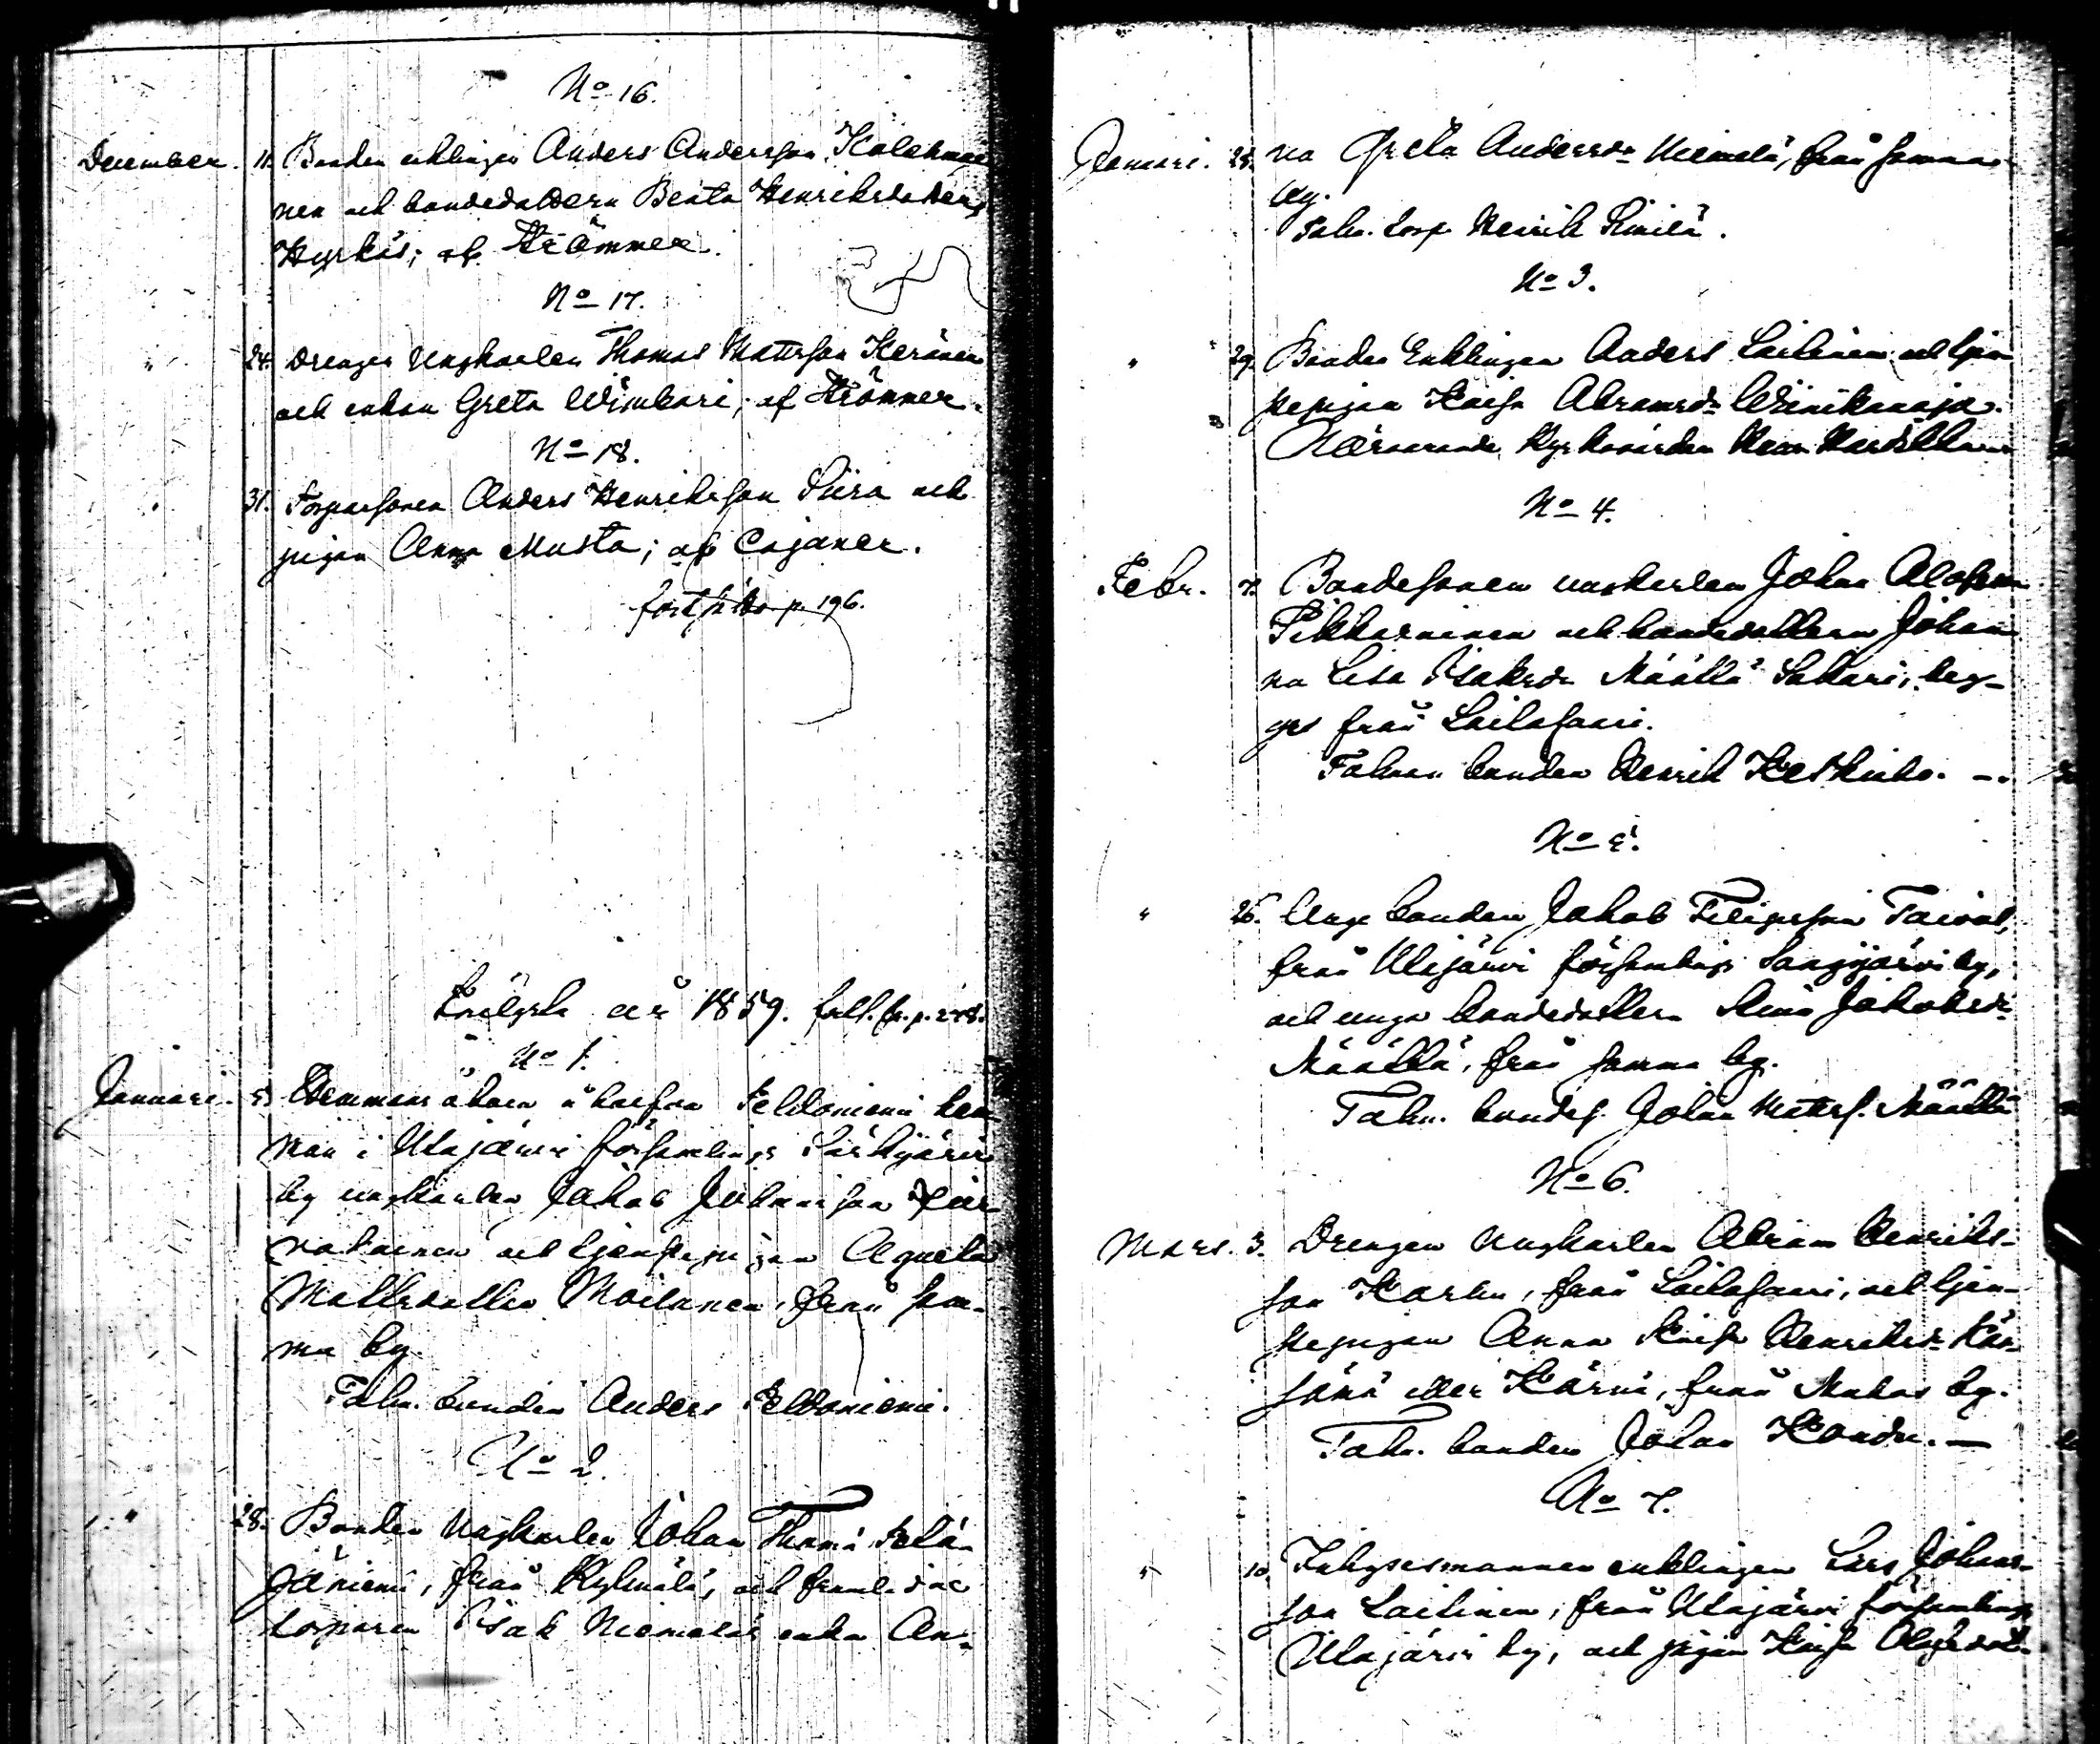 No 16.
December. 11. Bonden enklingen Anders Andersson Kolehmai
nen och bondedottern Beata Henriksdotter
Hyrkäs; af Krömmer.
No 17.
" 24. Drengen Ungkarlen Thomas Mattsson Keränen
och enkan Greta Wimbari; af Krömmer.
No 18.
" 31. Torparsonen Anders Henriksson Piira och
pigan Anna Musta; af Cajaner.
fortsätts p. 196.
år 1859. forts. fr. p. 278.
No 1.
Januari. 5. Hemmans åboen å halfva Peldoniemi hem
man i Utajärvi församlings Särkijärvi
by ungkarlen Jakob Johansson
och tjenstepigan Agneta
Mattsdotter Moilanen, från sam-
ma by.
Talm. bonden Anders Peldoniemi.
No 2.
" 28. Bonden Ungkarlen Johan Thom:
jäniemi, från Kylmälä, och framl.
torparen Isak Niemeläs enka An-
Januari. 28. na Greta Andersdr Niemelä, från samma
by.
Talm. torp. Henrik Similä.
No 3.
" 29. Bonden Enklingen Anders Laitinen och tjen
stepigan Kaisa Abramsdr Wiinikanoja.
Närvarande Kyrkovärden
No 4.
Febr. 7. Bondesonen ungkarlen Johan Olofsson
Pikkarainen och bondedottern Johan
na Lisa Isaksdr Määttä Sakari, beg-
ges från Lailasaari.
Talman bonden Henrik Keskitalo. —
No 5.
" 26. Unge bonden Jakob Filipsson Taival,
från Utajärvi församlings Sanginjärvi by,
och unga bondedottern Stina Jakobsdr
Määttä, från samma by.
Talm. bondes. Johan Matts. Määttä
No 6.
Mars. 3. Drengen Ungkarlen Abram Henriks-
son Karhu, från Lailasaari, och tjen-
stepigan Anna Kaisa Henriksdr Kän-
sänä eller Kärnä, från Muhos by.
Talm. bonden Johan Kondu. —
No 7.
" 10. Inhysesmannen enklingen Lars Johans-
son Laitinen, från Utajärvi församlings
Utajärvi by, och pigan Kaisa Olofsdot-